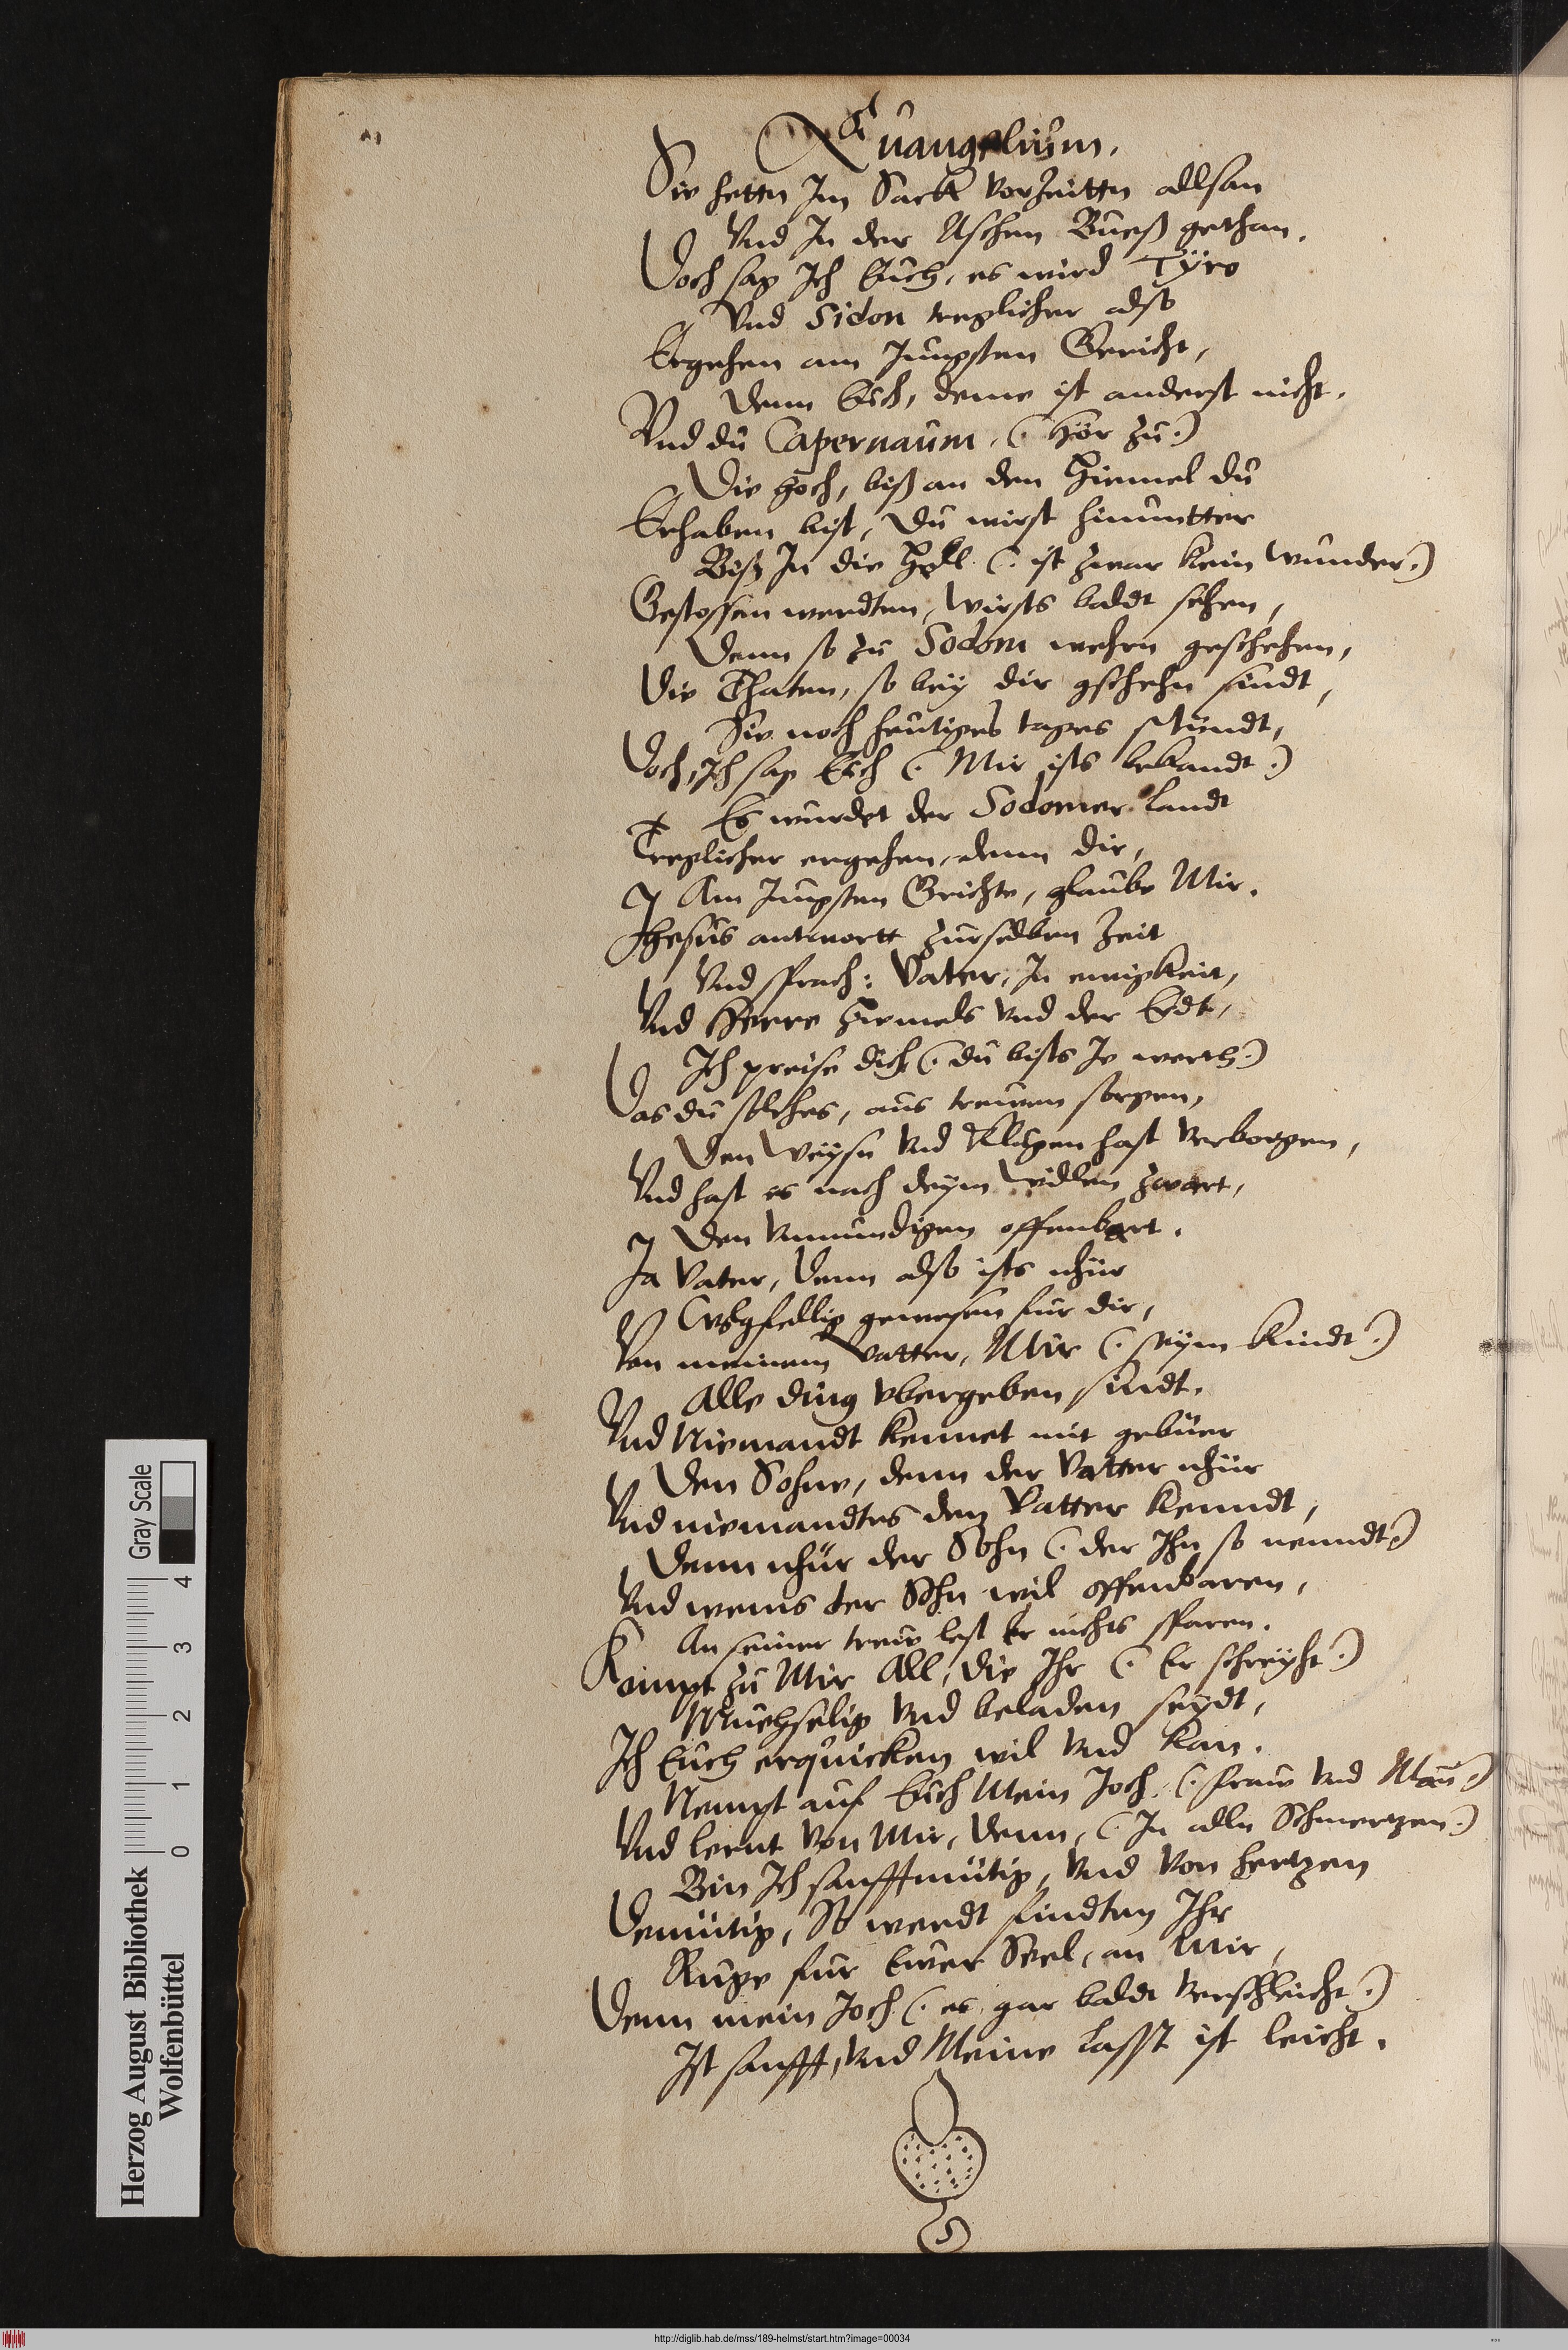 Euangelium.
Sie hettn Im Sackk vorzeittn allsan
Vnd In der Aschen Bueß gethan.
Doch sag Ich Euch, es wird Tÿro
Vnd Sidon treglicher also
Ergehen am Jungsten Gericht,
Denn Euch, deme ist anderst nicht.
Vnd du Capernaum, (: hör zu :)
Die hoch, biß an den Himmel du
Erhaben bist, Du wirst hinuntter
Biß In die Hell (: ist zwar kein wunder :)
Gestossen werdten, wirsts baldt sehen,
Denn so zu Sodom wehrn geschehen,
Die Thaten, so beÿ dir gschehn sindt,
Sie noch heutiges tages stündt,
Doch, Ich sag Euch (: Mir ists bekandt :)
Es wurdet der Sodomer Landt
Treglicher ergehen, denn dir,
Am Jungsten Grichte, glaube Mir.
Jhesus antwortt zurselben Zeit
Vnd sprach: Vater, In ewigkeit,
Vnd Herre Himels vnd der Erdt,
Ich preise dich (: du bists Je werth :)
Das du solches, aus trewen sorgen,
Den Weÿsn vnd Klugen hast verborgen,
Vnd hast es nach deÿm willen zwart,
Den vnmundigen offenbart.
Ja Vater, Denn also ists nhür
Wolgfellig gewesen fur dir,
Von meinem Vatter, Mir (: seÿm Kindt :)
Alle ding vbergeben sindt.
Vnd Niemandt kennet mit gebüer
Den Sohne, denn der Vatter nhür
Vnd niemandtes den Vatter kenndt,
Denn nhür der Sohn (: der Ihn so nenndt :)
Vnd wems der Sohn wil offenbaren,
An seiner trew lest Er nichts sparen.
Kompt zu Mir All, die Ihr (: Er schreÿht :)
Muehselig vnd beladen seÿdt,
Ich Euch erquicken wil vnd kan.
Nempt auf Euch Mein Joch (: fraw vnd Man :)
Vnd lernt von Mir, Denn, (: In alln Schmertzen :)
Bin Ich sanfftmütig, vnd von hertzen
Demütig, So werdt findten Ihr
Ruge fur Ewer Seel, an Mir,
Denn mein Joch (: es gar baldt verschleicht :)
Ist sanfft, vnd Meine Lasst ist leicht.
Gray Scale
0 1 2 3 4
Herzog August Bibliothek
Wolfenbüttel
http://diglib.hab.de/mss/189-helmst/start.htm?image=00034